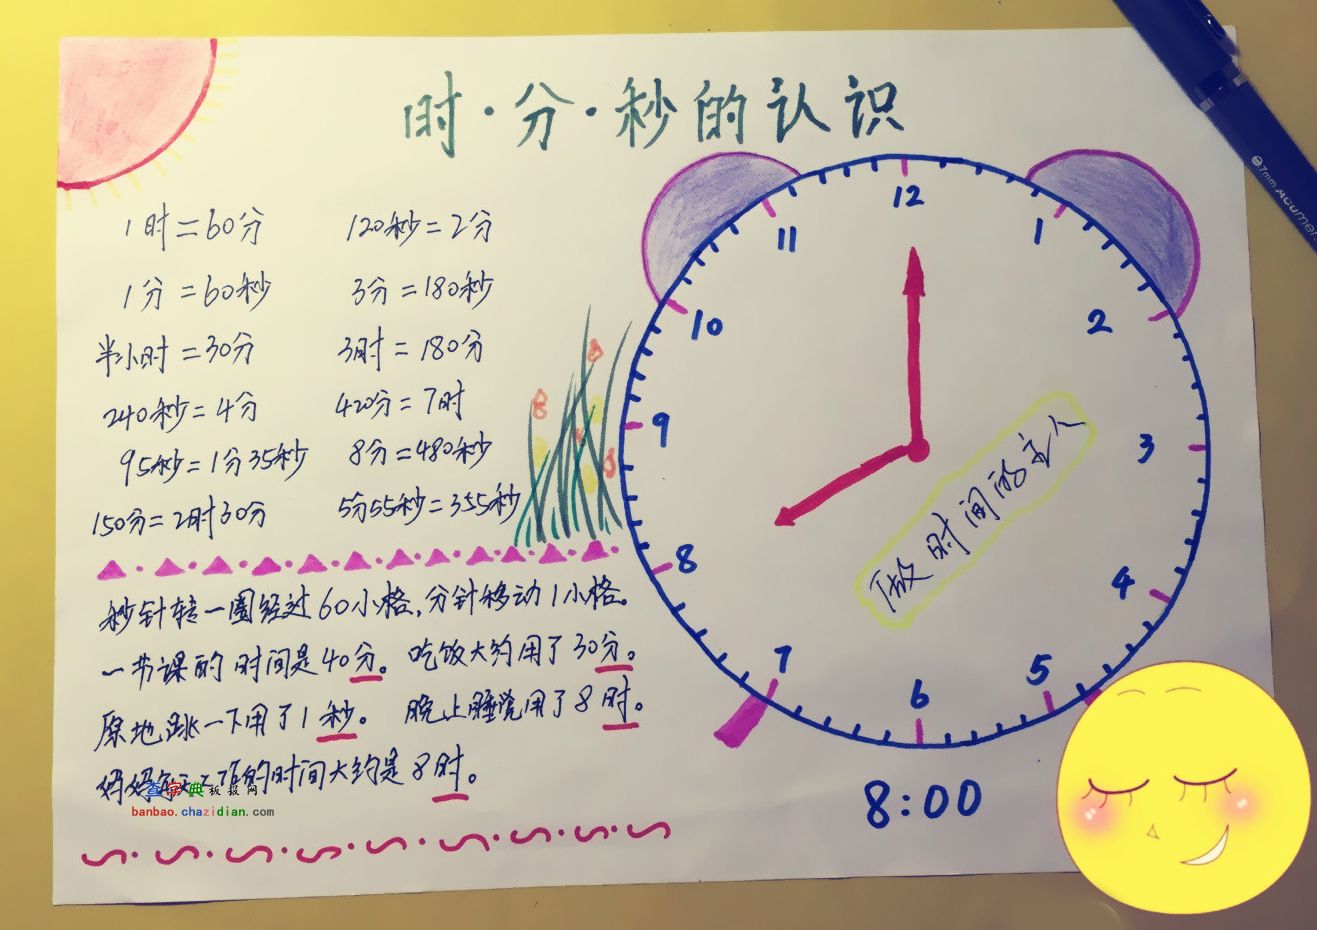 时·分·秒的认识
1时=60分
120秒=2分
1分=60秒
3分=180秒
半小时=30分
3时=180分
240秒=4分
420分=7时
95秒=1分35秒
8分=480秒
150分=2时30分
5分55秒=355秒
秒针转一圈经过60小格,分针移动1小格。
一节课的时间是40分。 吃饭大约用了30分。
原地跳一下用了1秒。 晚上睡觉用了8时。
妈妈每天工作的时间大约是8时。
查字典板报网
banbao.chazidian.com
12
11
1
10
2
9
3
8
4
7
5
6
做时间的主人
8:00
7mm